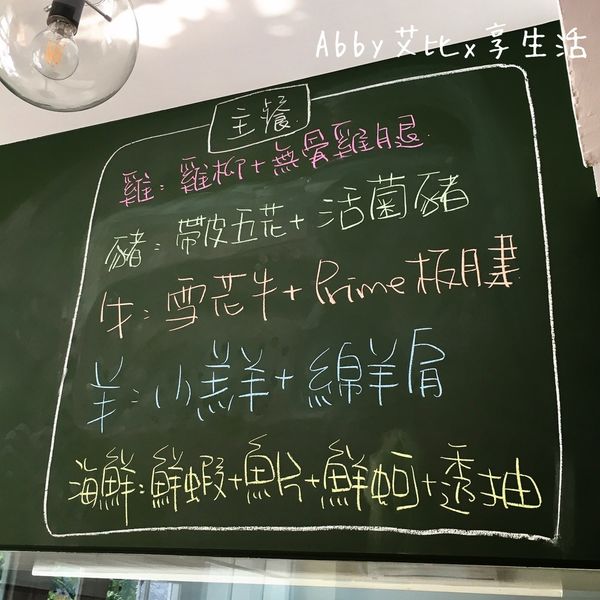 Abby艾比x享生活
主餐
雞:雞柳+無骨雞腿
豬:帶皮五花+活菌豬
牛:雪花牛+Prime板腱
羊:小羔羊+綿羊肩
海鮮:鮮蝦+魚片+鮮蚵+透抽